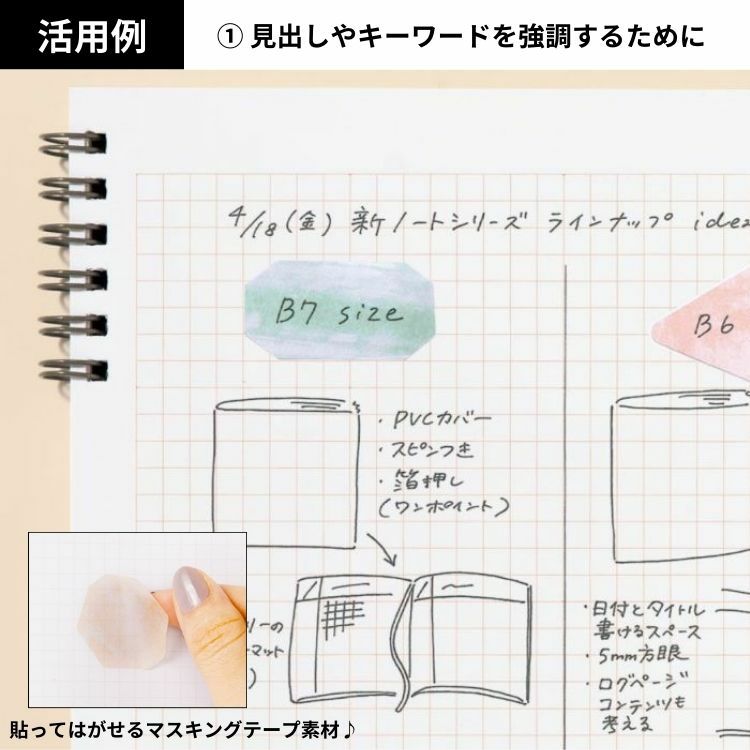 活用例
① 見出しやキーワードを強調するために
4/18(金) 新ノートシリーズ ラインナップ idea
B7 size
B6
・PVCカバー
・スピンつき
・箔押し
(ワンポイント)
リーの
マット
)
・日付とタイトル
書けるスペース
・5mm方眼
・ログページ
コンテンツも
考える
貼ってはがせるマスキングテープ素材♪